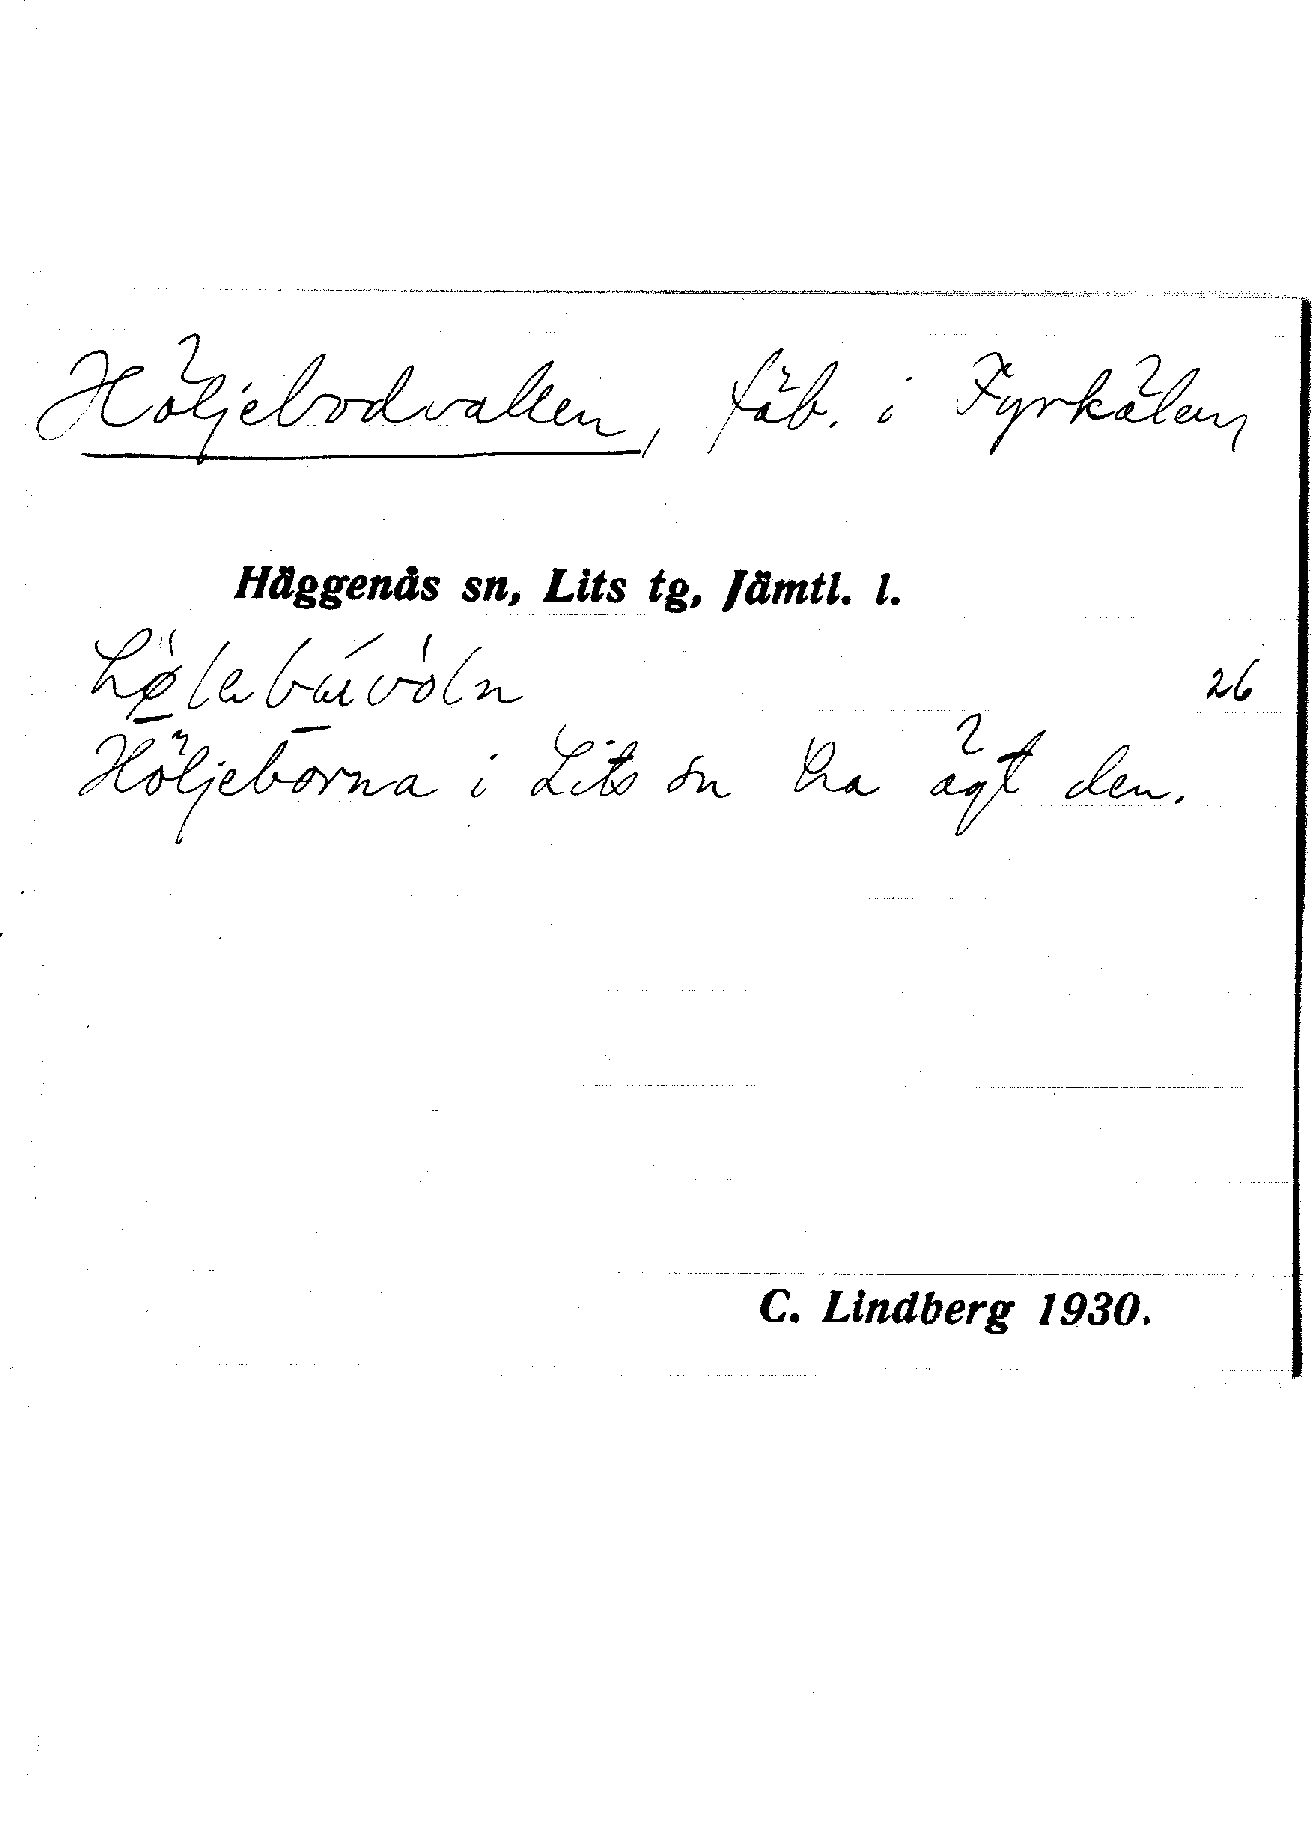 Höljebodvallen, fäb. i Fyrkälen
Häggenås sn, Lits tg, Jämtl. l.
26
Höljeborna i Lits sn ha ägt den.
C. Lindberg 1930.